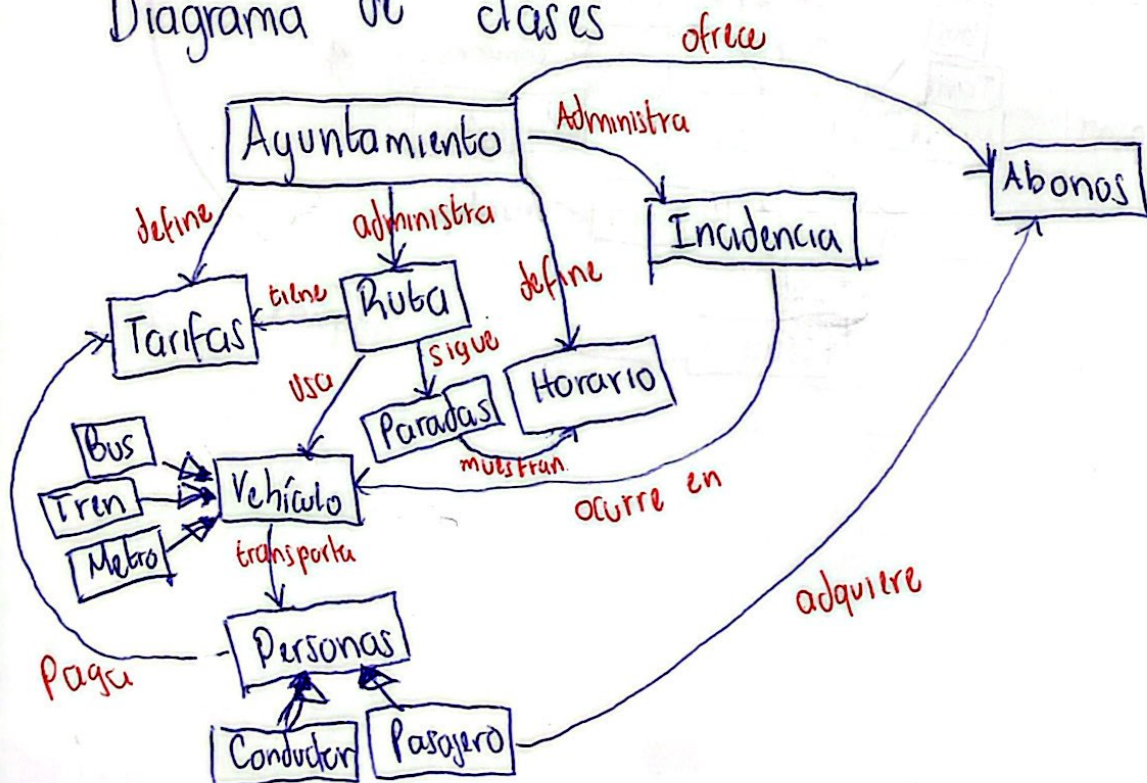 Diagrama de clases
ofrece
Ayuntamiento
Administra
Abonos
define
administra
define
Incidencia
Tarifas
tiene
Ruta
usa
sigue
Horario
Paradas
muestran
Bus
Tren
Metro
Vehículo
ocurre en
transporta
Personas
adquiere
Paga
Conductor
Pasajero